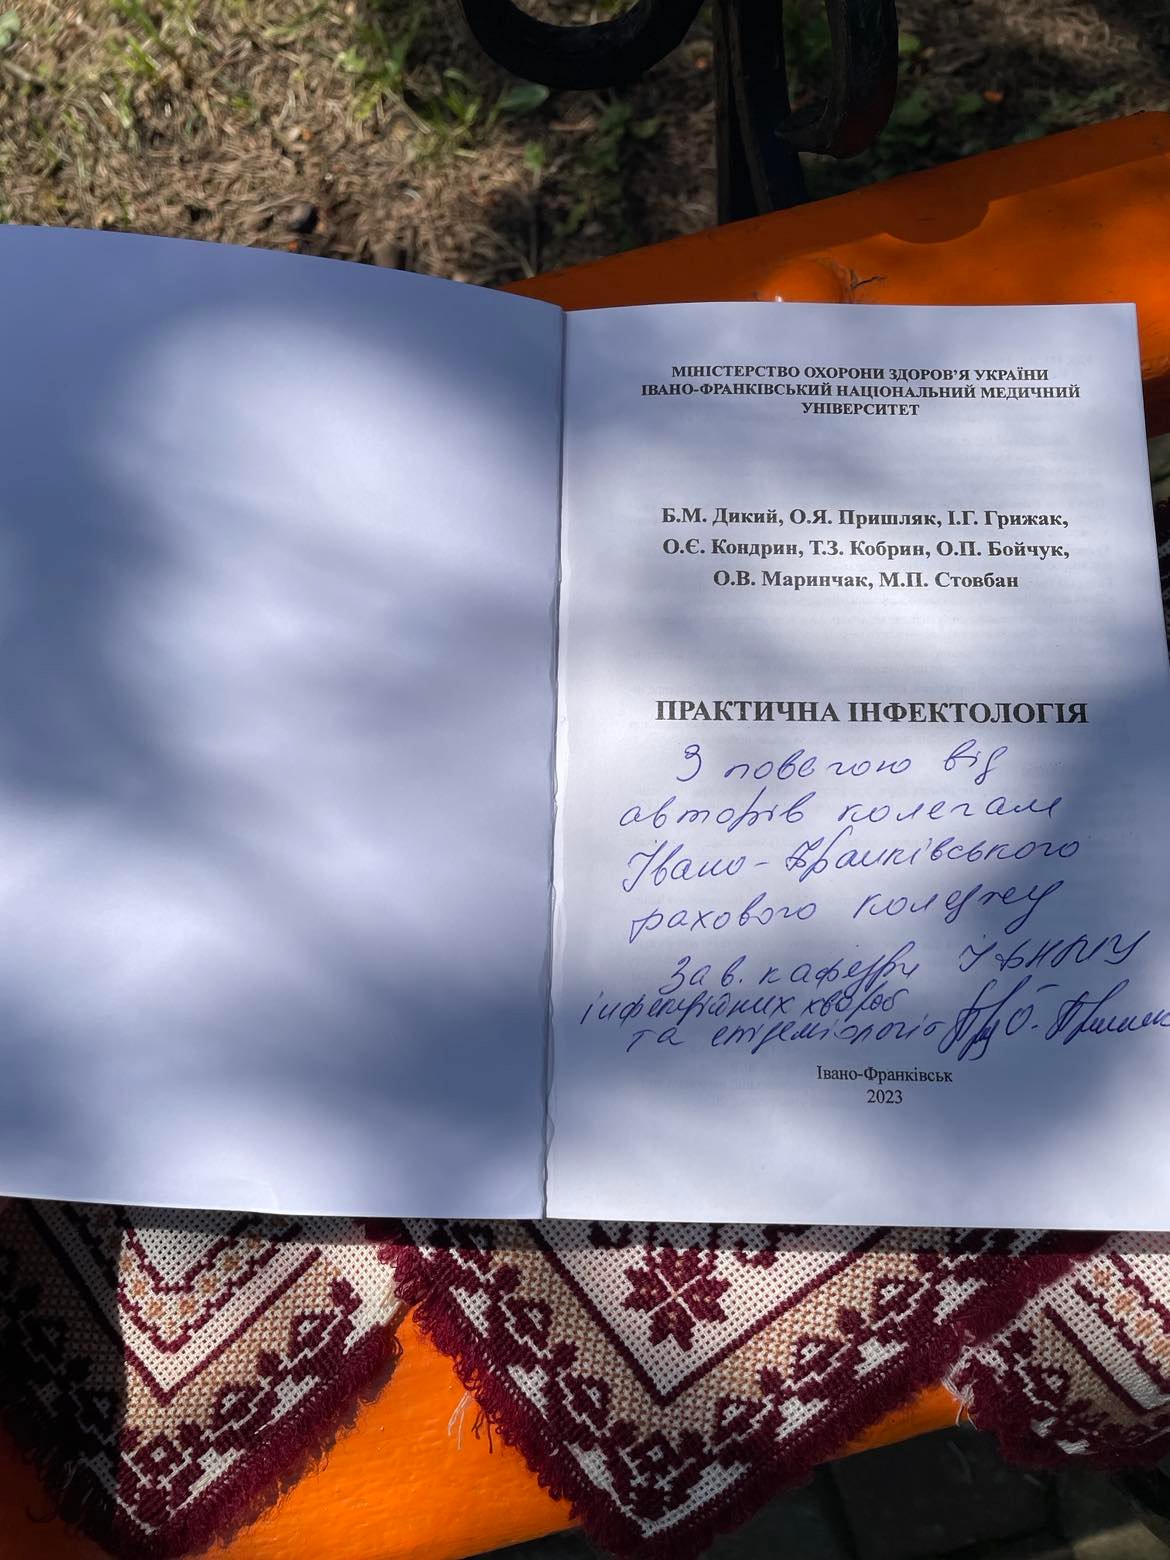 МІНІСТЕРСТВО ОХОРОНИ ЗДОРОВ'Я УКРАЇНИ
ІВАНО-ФРАНКІВСЬКИЙ НАЦІОНАЛЬНИЙ МЕДИЧНИЙ
УНІВЕРСИТЕТ
Б.М. Дикий, О.Я. Пришляк, І.Г. Грижак,
О.Є. Кондрин, Т.З. Кобрин, О.П. Бойчук,
О.В. Маринчак, М.П. Стовбан
ПРАКТИЧНА ІНФЕКТОЛОГІЯ
З повагою від
авторів колегам
Івано-Франківського
фахового коледжу
Зав. кафедри ІФНМУ
інфекційних хвороб
та епідеміології О. Пришляк
Івано-Франківськ
2023